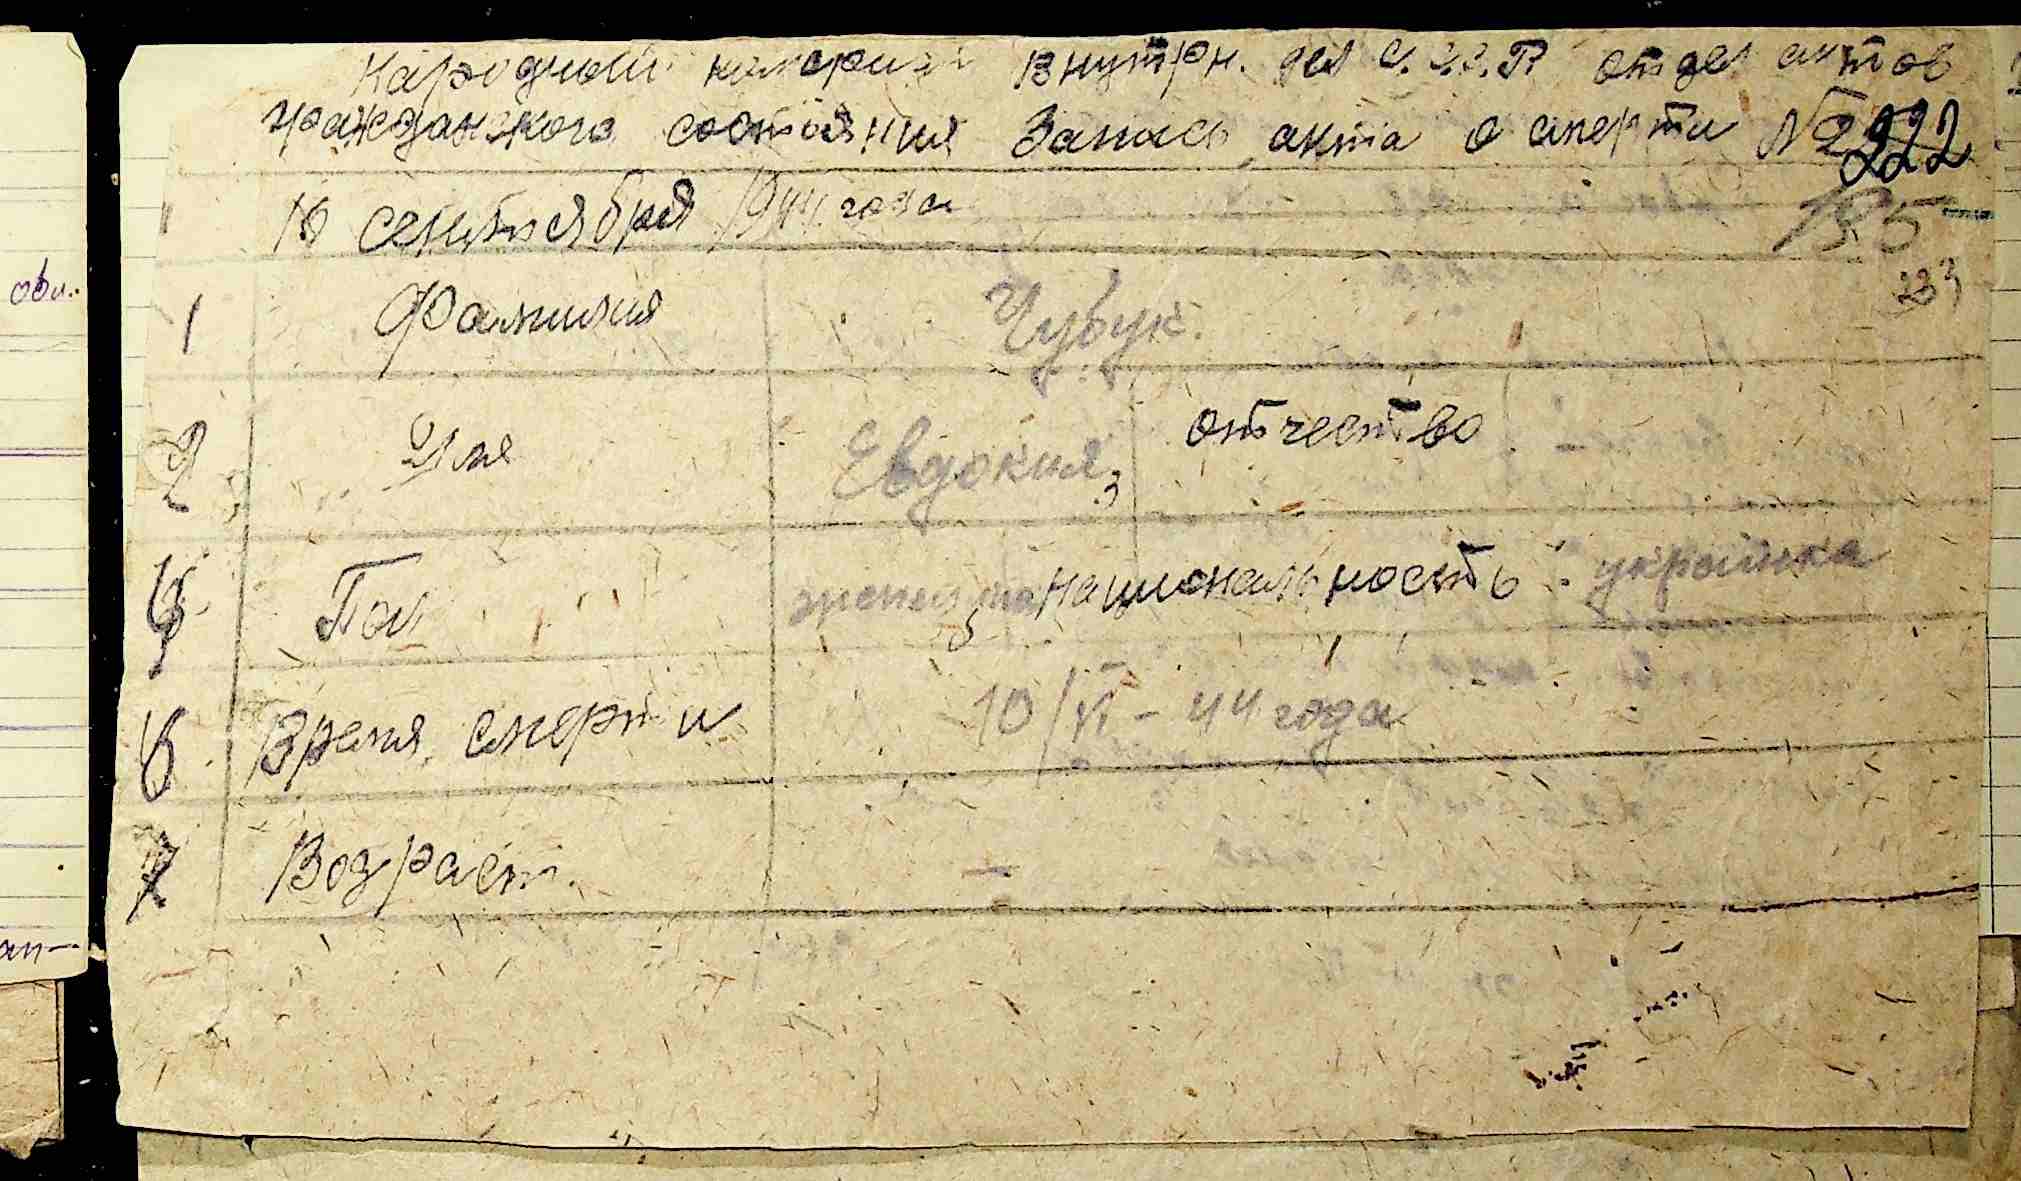 Народный комориат Внутрн. дел С.С.С.Р отдел актов
гражданского состояния Запись акта о смерти № 222
18 сентября 1944 года
195
233
1 Фамилия Чубук.
2 Имя Евдокия 3 отчество
4 Пол женщина 5 национальность украинка
6 Время смерти 10/VI - 44 года
7 Возраст —